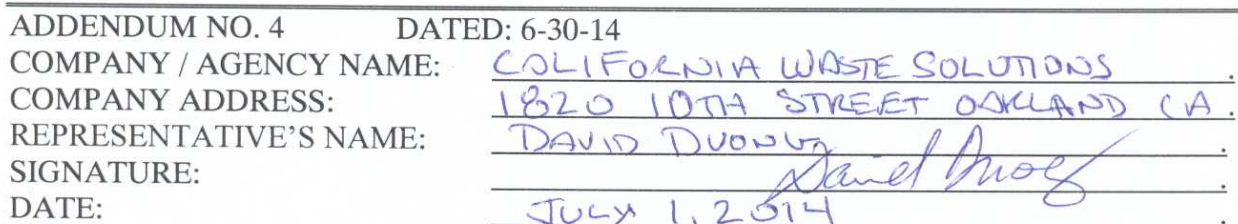 ADDENDUM NO. 4 DATED: 6-30-14
COMPANY / AGENCY NAME: CALIFORNIA WASTE SOLUTIONS .
COMPANY ADDRESS: 1820 10TH STREET OAKLAND CA .
REPRESENTATIVE'S NAME: DAVID DUONG .
SIGNATURE: David Duong .
DATE: JULY 1, 2014 .